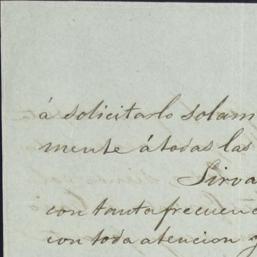 á solicitarlo solam
mente á todas las
Sirva
con tanta frecuenc
con toda atencion y